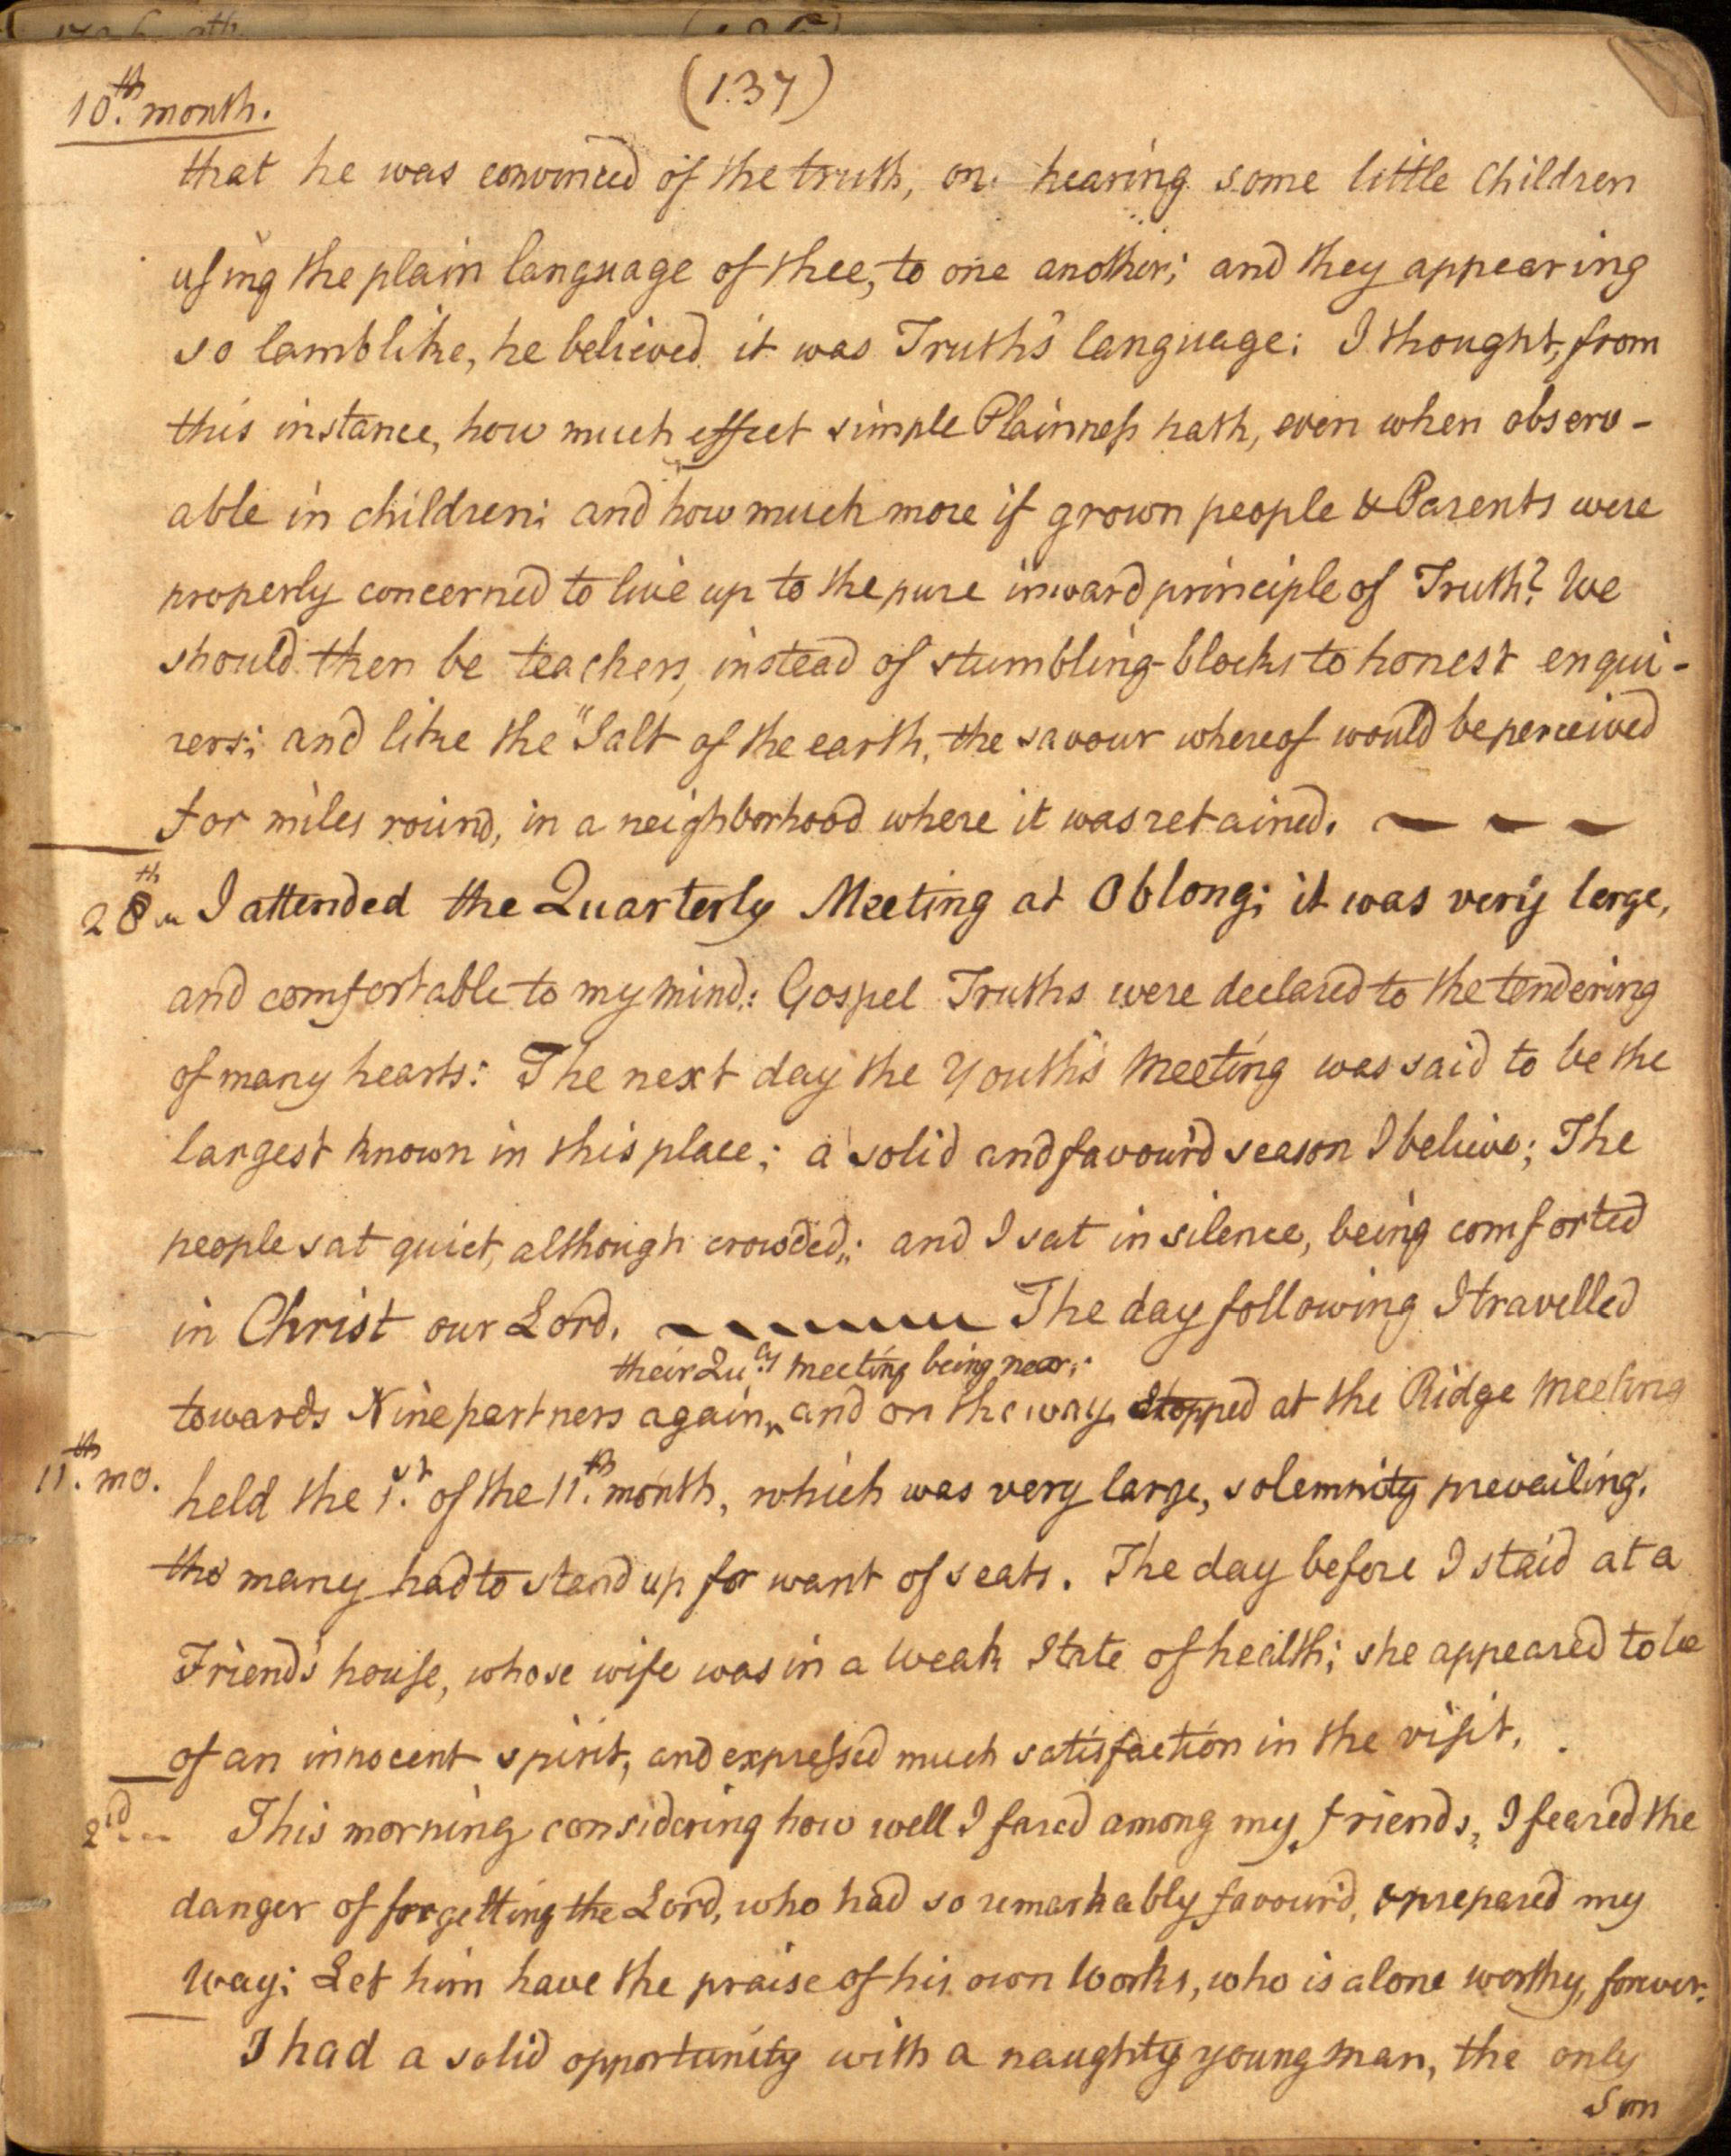 (137)
10th. month.
that he was convinced of the truth, on hearing some little children
using the plain language of thee, to one another; and they appearing
so lamblike, he believed it was Truth's language: I thought, from
this instance, how much effect simple Plainness hath, even when observ-
able in children; and how much more if grown people & Parents were
properly concerned to live up to the pure inward principle of Truth? We
should then be teachers, instead of stumbling-blocks to honest enqui-
rers; and like the "Salt of the earth, the savour whereof would be perceived
for miles round, in a neighborhood where it was retained.
28th I attended the Quarterly Meeting at Oblong; it was very large,
and comfortable to my mind: Gospel Truths were declared to the tendering
of many hearts: The next day the Youth's Meeting was said to be the
largest known in this place; a solid and favour'd season I believe; The
people sat quiet, although crowded; and I sat in silence, being comforted
in Christ our Lord. The day following I travelled
their Quly meeting being near;
towards Ninepartners again, and on the way, stopped at the Ridge Meeting
11th. mo. held the 1st. of the 11th. month, which was very large, solemnity prevailing,
tho' many had to stand up for want of seats. The day before I staid at a
Friend's house, whose wife was in a weak State of health; she appeared to be
of an innocent spirit, and expressed much satisfaction in the visit.
2d This morning considering how well I fared among my friends, I feared the
danger of forgetting the Lord, who had so remarkably favour'd, & prepared my
way: Let him have the praise of his own Works, who is alone worthy, forever.
I had a solid opportunity with a naughty young man, the only
Son